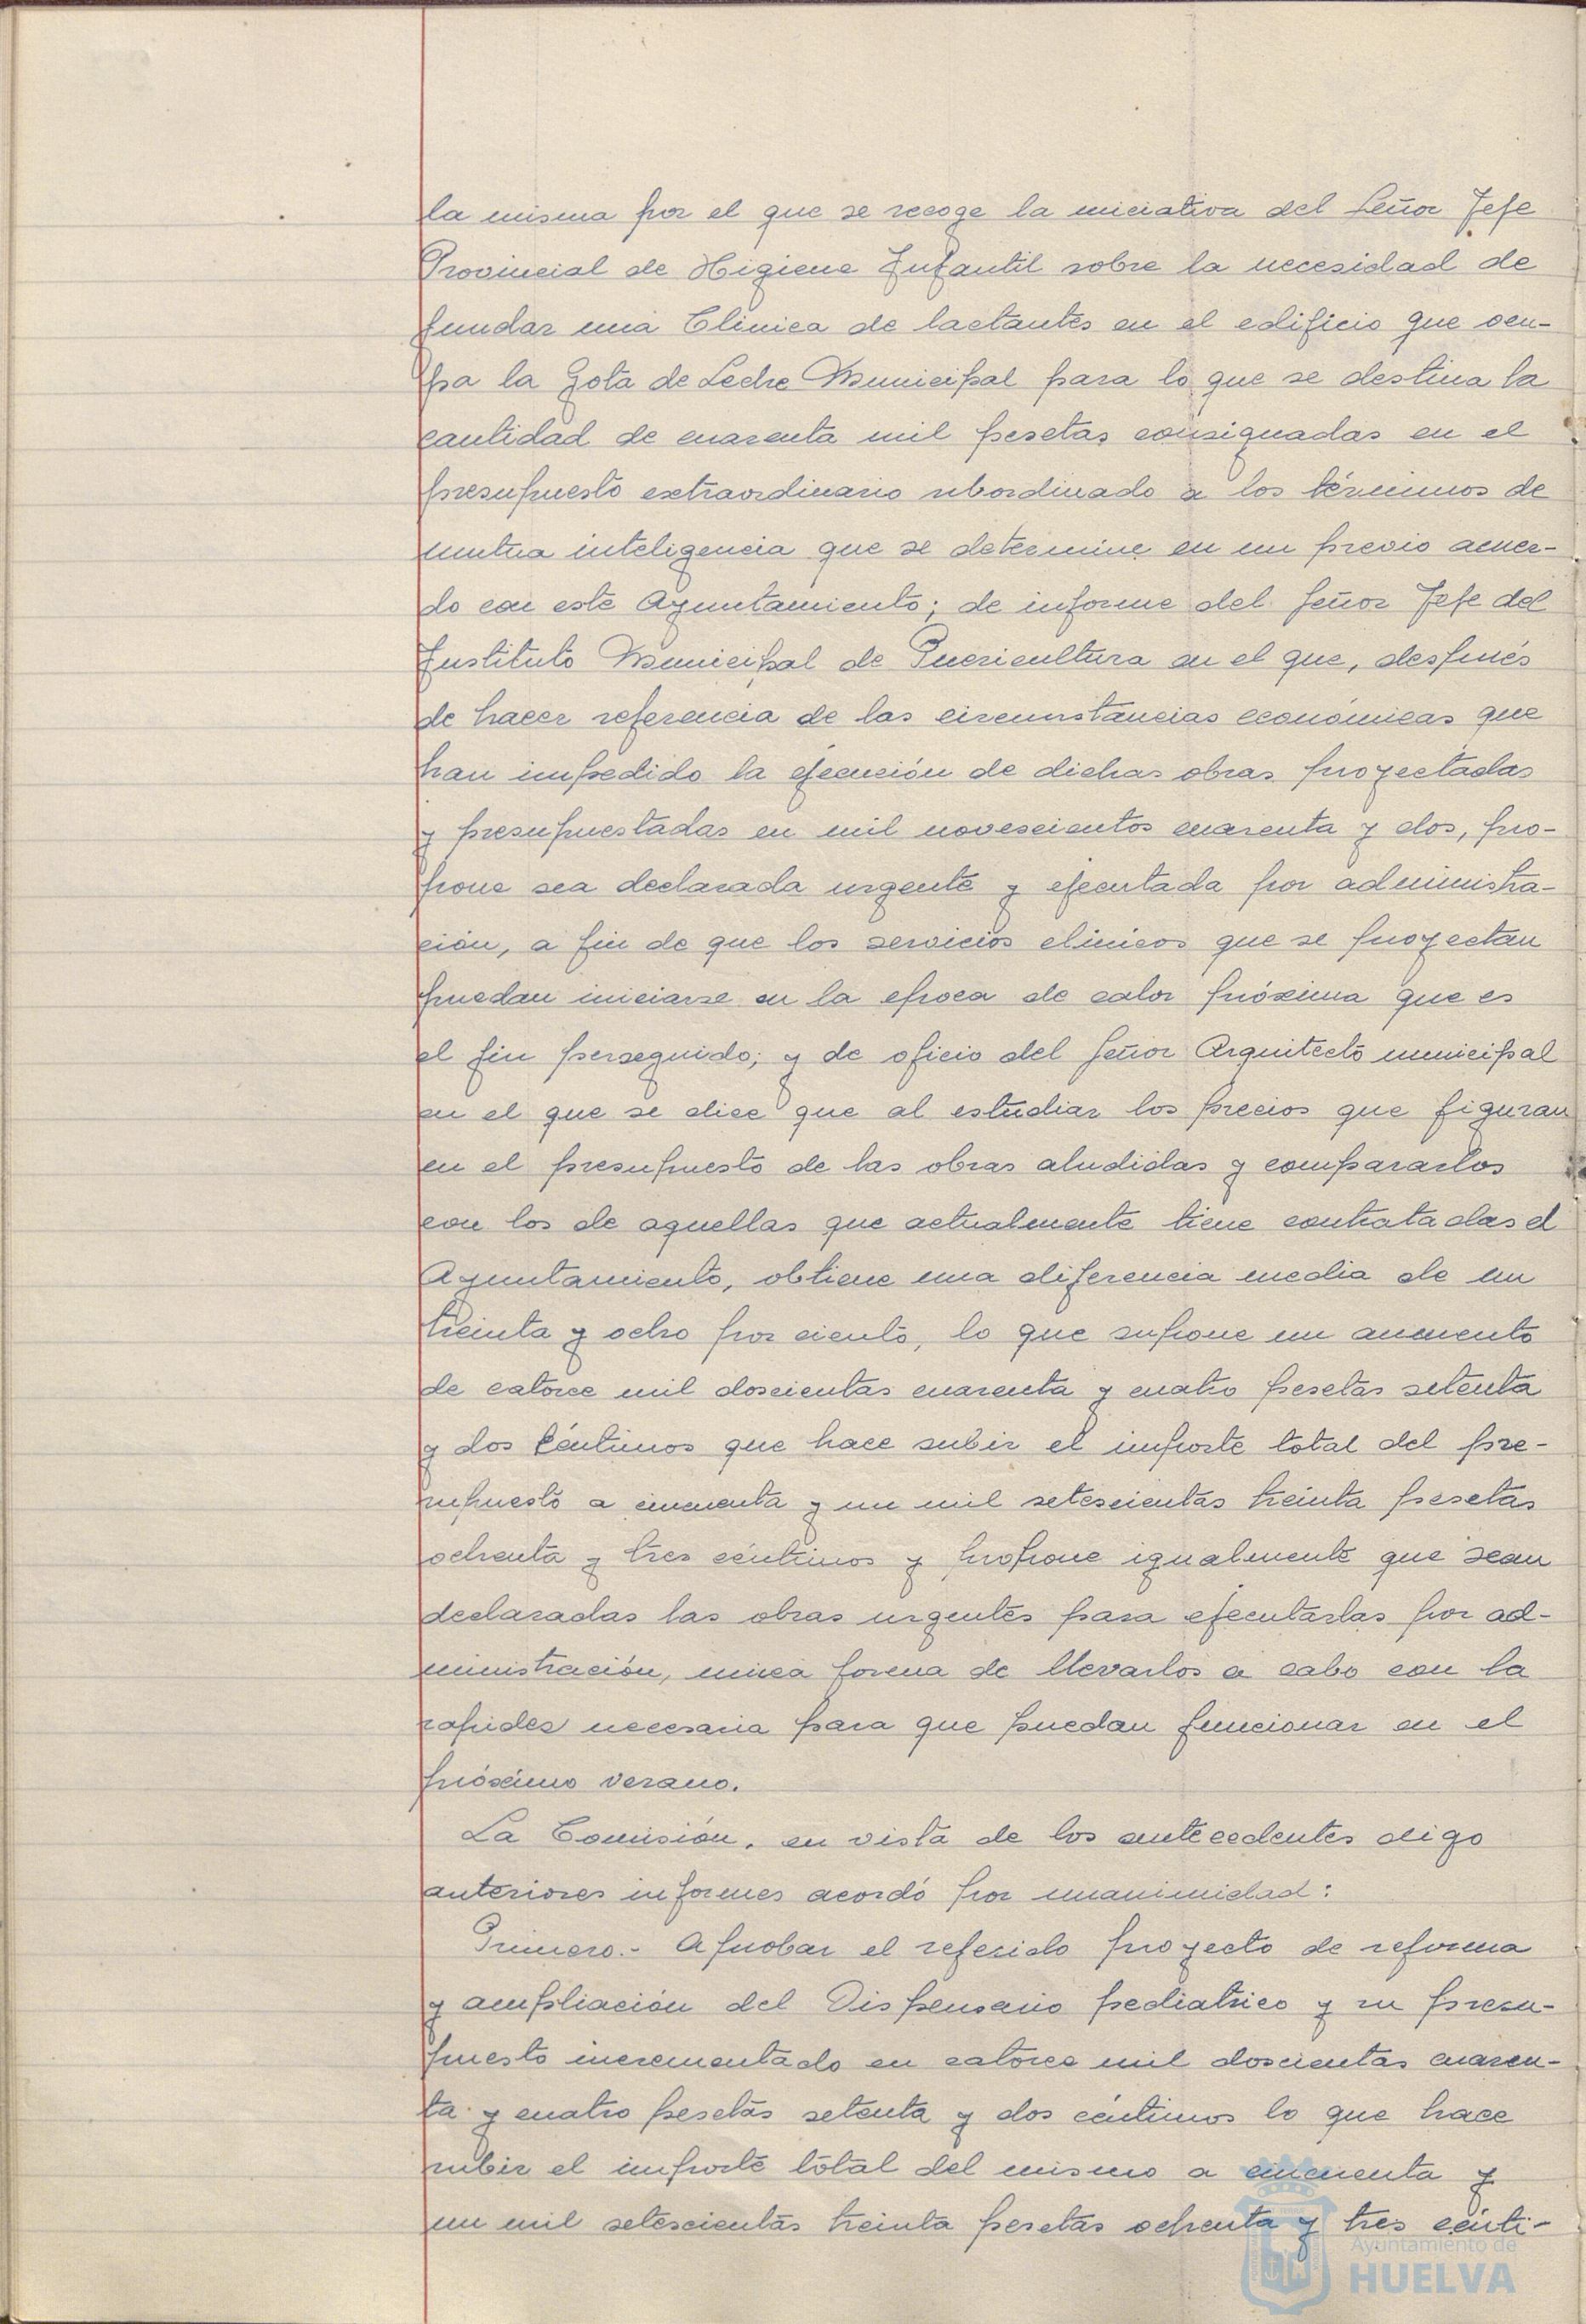 la misma por el que se recoge la iniciativa del Señor Jefe
Provincial de Higiene Infantil sobre la necesidad de
fundar una Clinica de lactantes en el edificio que ocu-
pa la Gota de Leche Municipal para lo que se destina la
cantidad de cuarenta mil pesetas consignadas en el
presupuesto extraordinario subordinado a los términos de
mutua inteligencia que se determine en un previo acuer-
do con este Ayuntamiento; de informe del Señor Jefe del
Instituto Municipal de Puericultura en el que, después
de hacer referencia de las circunstancias económicas que
han impedido la ejecución de dichas obras proyectadas
y presupuestadas en mil novescientos cuarenta y dos, pro-
pone sea declarada urgente y ejecutada por administra-
ción, a fin de que los servicios clinicos que se proyectan
puedan iniciarse en la epoca de calor próxima que es
el fin perseguido; y de oficio del Señor Arquitecto municipal
en el que se dice que al estudiar los precios que figuran
en el presupuesto de las obras aludidas y compararlos
con los de aquellas que actualmente tiene contratadas el
Ayuntamiento, obtiene una diferencia media de un
treinta y ocho por ciento, lo que supone un aumento
de catorce mil doscientas cuarenta y cuatro pesetas setenta
y dos céntimos que hace subir el importe total del pre-
supuesto a cincuenta y un mil setescientas treinta pesetas
ochenta y tres céntimos y propone igualmente que sean
declaradas las obras urgentes para ejecutarlas por ad-
ministración, unica forma de llevarlos a cabo con la
rapidez necesaria para que puedan funcionar en el
próximo verano.
La Comisión, en vista de los antecedentes digo
anteriores informes acordó por unanimidad:
Primero.- Aprobar el referido proyecto de reforma
y ampliación del Dispensario pediatrico y su presu-
puesto incrementado en catorce mil doscientas cuaren-
ta y cuatro pesetas setenta y dos céntimos lo que hace
subir el importe total del mismo a cincuenta y
un mil setescientas treinta pesetas ochenta y tres cénti-
Ayuntamiento de
HUELVA